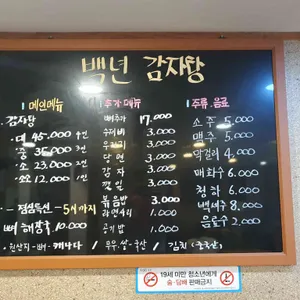 백년 감자탕
메인메뉴
감자탕
대 46.000 4인
중 35.000 3인
소 23.000 2인
소 12.000 1인
- 점심특선 - 5시까지
뼈 해장국 10.000
추가 메뉴
뼈추가 17.000
수제비 3.000
우거지 3.000
당면 3.000
감자 3.000
깻잎 3.000
볶음밥 3.000
라면사리 1.000
공기밥 1.000
주류.음료
소주 5.000
맥주 5.000
막걸리 4.000
매화수 6.000
청하 6.000
백세주 8.000
음료수 2.000
원산지 - 뼈: 캐나다 / 우무.쌀-국산 / 김치 (국산)
19세 미만 청소년에게
술·담배 판매금지